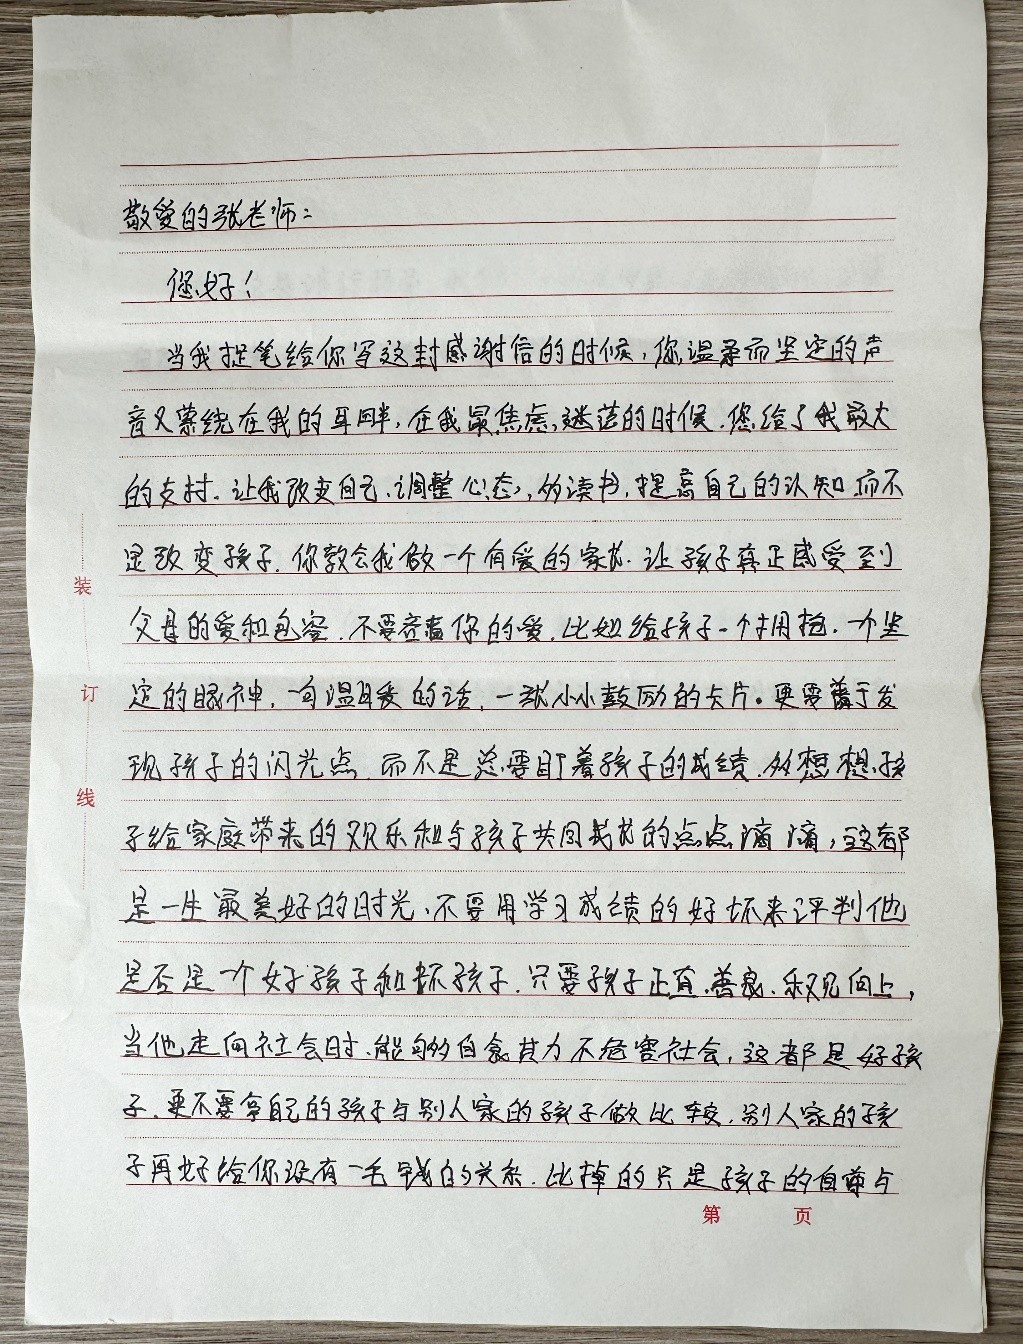 敬爱的张老师：
您好！
当我提笔给你写这封感谢信的时候，你温柔而坚定的声
音又萦绕在我的耳畔，在我最焦虑，迷茫的时候，您给了我最大
的支持，让我改变自己，调整心态，多读书，提高自己的认知而不
是改变孩子，你教会我做一个有爱的家长，让孩子真正感受到
父母的爱和包容，不要吝啬你的爱，比如给孩子一个拥抱，一个坚
定的眼神，一句温暖的话，一张小小鼓励的卡片。更要善于发
现孩子的闪光点，而不是总要盯着孩子的成绩，多想想孩
子给家庭带来的欢乐和与孩子共同成长的点点滴滴，这都
是一生最美好的时光，不要用学习成绩的好坏来评判他
是否是一个好孩子和坏孩子，只要孩子正直、善良、积极向上，
当他走向社会时，能够自食其力不危害社会，这都是好孩
子，更不要拿自己的孩子与别人家的孩子做比较，别人家的孩
子再好给你没有一毛钱的关系，比掉的只是孩子的自尊与
装
订
线
第 页